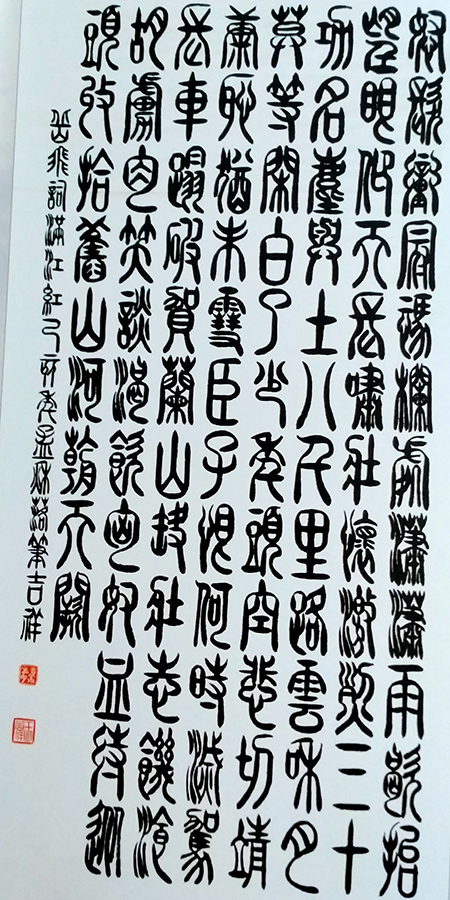 怒髮衝冠憑欄處瀟瀟雨歇抬
望眼仰天長嘯壯懷激烈三十
功名塵與土八千里路雲和月
莫等閑白了少年頭空悲切靖
康恥猶未雪臣子恨何時滅駕
長車踏破賀蘭山缺壯志饑湌
胡虜肉笑談渴飲匈奴血待從
頭收拾舊山河朝天闕
岳飛詞滿江紅乙亥年孟秋落筆吉祥